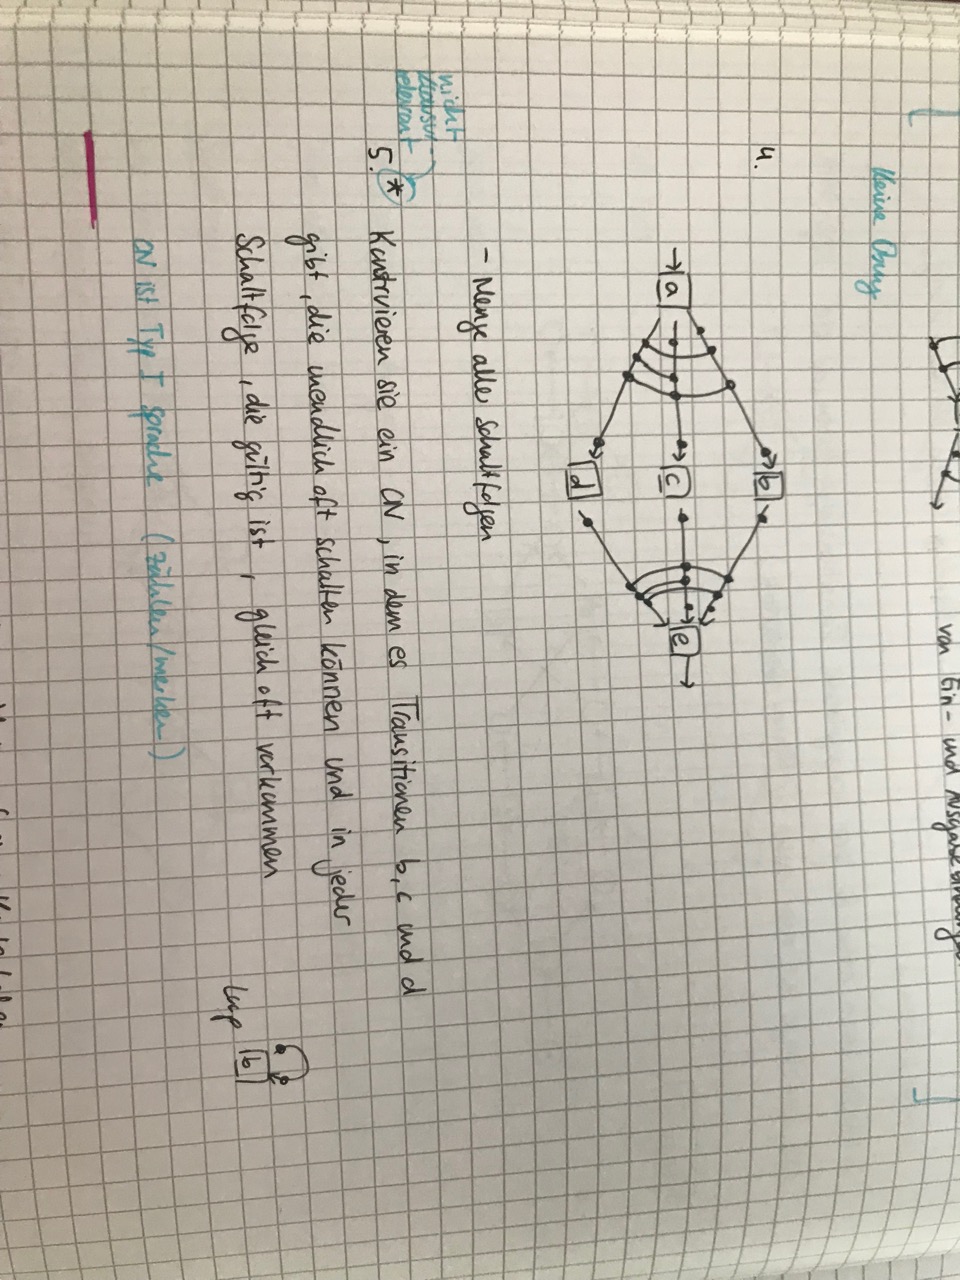 von Ein- und Ausgabebindungen
Keine Lösung
4.
b
a
c
e
d
- Menge alle Schaltfolgen
nicht
klausur
relevant
5.* Konstruieren sie ein CN, in dem es Transitionen b, c und d
gibt, die unendlich oft schalten können und in jeder
Schaltfolge, die gültig ist, gleich oft vorkommen
Loop b
CN ist Typ I Sprache (zählen/merken)